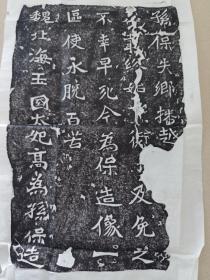 孫保失鄉播越
終始及免之
不幸早死今為保造像一
區使永脫百苦
魏北海王國太妃高為孫保造